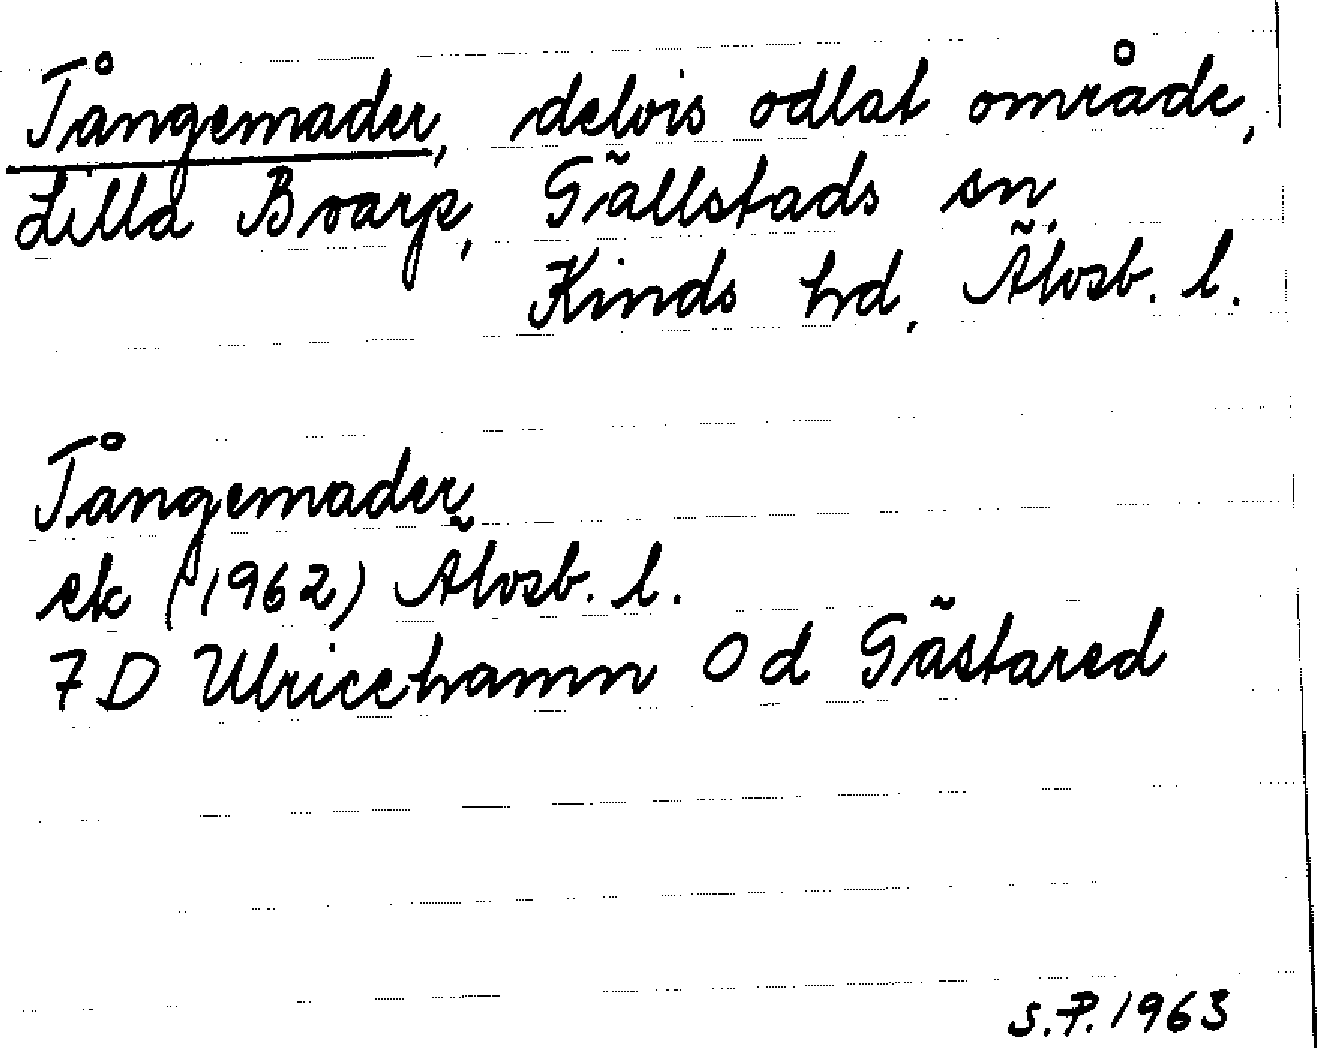 Tångemader, delvis odlat område,
Lilla Broarp, Gällstads sn,
Kinds hd, Älvsb. l.
Tångemader
ek (1962) Älvsb. l.
7D Ulricehamn 0d Gästared
S.P. 1963